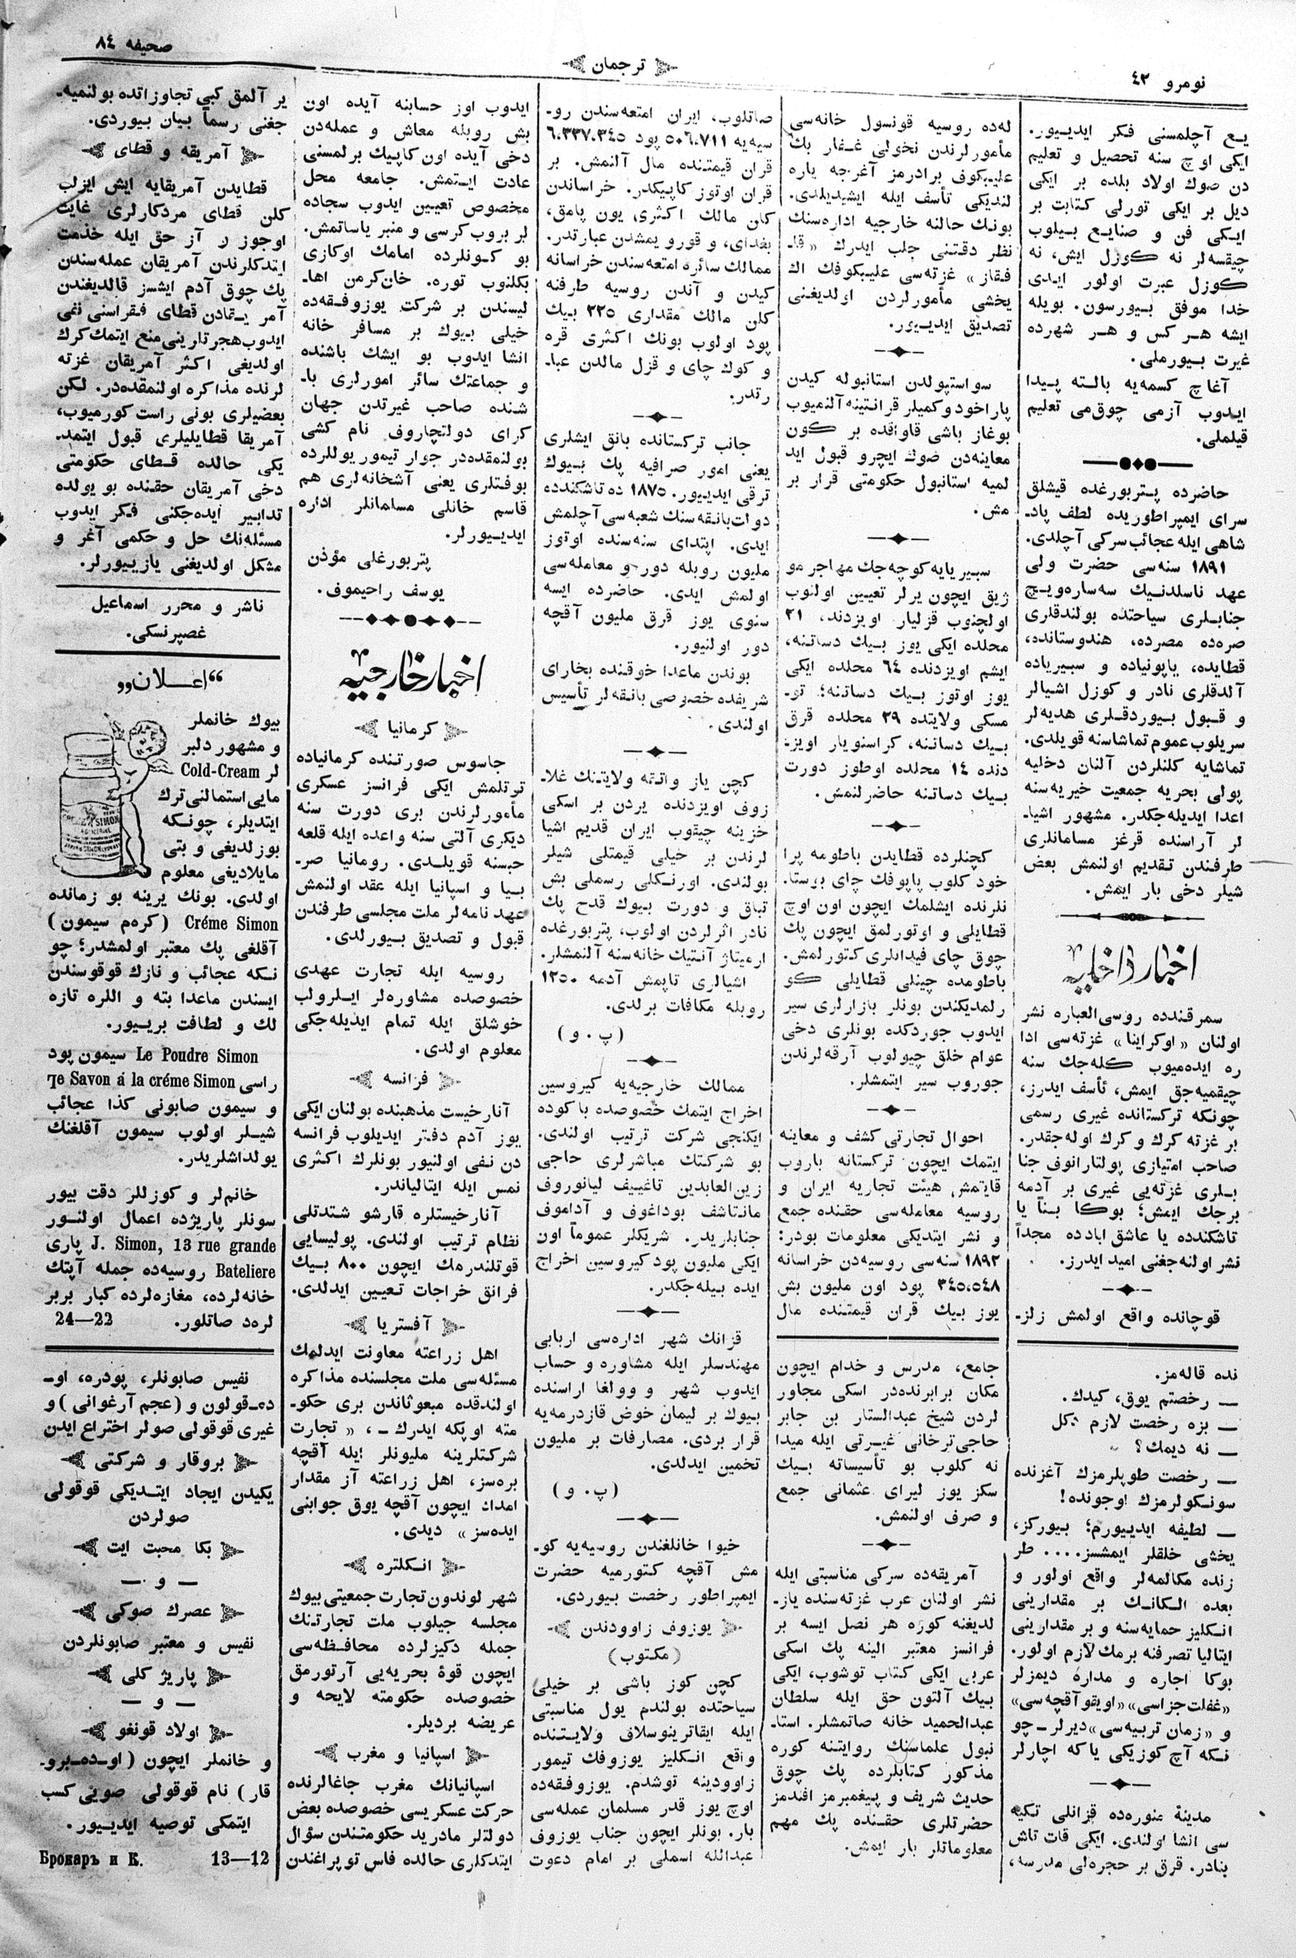 نومرو ٤٢
ترجمان
صحیفه ٨٤
یـع آچلمسنی فکر ایدییور.
ایکی اوچ سنه تحصیل و تعلیم
دن صوك اولاد بلده بر ایکی
دیل بر ایکی تورلی کتابت بر
ایکی فن و صنایع بیلوب
چیقسه لر نه گوزل ایش، نه
گوزل عبرت اولور ایدی
خدا موفق بیورسون. بویله
ایشه هر کس و هر شهرده
غیرت بیورملی.
آغاچ کسمه یه بالته پیدا
ایدوب آزمی چوق می تعلیم
قیلملی.
حاضرده پتربورغده قیشلق
سرای ایمپراطوریده لطف پاد-
شاهی ایله عجائب سرکی آچلدی.
١٨٩١ سنه سی حضرت ولی
عهد ناسلدنیك سه ساره ویچ
جنابلری سیاحتده بولندقلری
صره ده مصرده، هندوستانده،
قطایده، یاپونیاده و سبیریاده
آلدقلری نادر و کوزل اشیالر
و قبول بیوردقلری هدیه لر
سریلوب عموم تماشاسنه قویلدی.
تماشایه کلنلردن آلنان دخلیه
پولی بحریه جمعیت خیریه سنه
اعدا ایدیله جکدر. مشهور اشیا-
لر آراسنده قرغز مسلمانلری
طرفندن تقدیم اولنمش بعض
شیلر دخی بار ایمش.
اخبار داخلیه
سمرقندده روسی العباره نشر
اولنان «اوکراینا» غزته سی ادا
ره ایده میوب کله جك سنه
چیقمیه جق ایمش، تأسف ایدرز،
چونکه ترکستانده غیری رسمی
بر غزته کرك و کرك اوله جقدر.
صاحب امتیازی پولتارانوف جنا
بلری غزته یی غیری بر آدمه
برجك ایمش؛ بوکا بنـاً یا
تاشکندده یا عاشق ابادده مجدداً
نشر اولنه جغنی امید ایدرز.
قوچانده واقع اولمش زلز-
نده قاله مز.
— رخصتم یوق، کیدك.
— بزه رخصت لازم دکل
— نه دیمك؟
— رخصت طوپلرمزك آغزنده
سونکولرمزك اوجونده!
— لطیفه ایدییورم؛ بیورکز،
یخشی خلقلر ایمشسز.... طر
زنده مکالمه لر واقع اولور و
بعده الکانك بر مقدارینی
انکلیز حمایه سنه و بر مقدارینی
ایتالیا تصرفنه برمك لازم اولور.
بوکا اجاره و مداره دیمزلر
«غفلت جزاسی» «اویقو آقچه سی»
و «زمان تربیه سی» دیرلر—چو
نکه آچ کوزیکی یا که اچارلر
مدینهٔ منوره ده قزانلی تکیه
سی انشا اولندی. ایکی قات تاش
بنادر. قرق بر حجره لی مدرسه،
له ده روسیه قونسول خانه سی
مأمورلرندن نخولی غـفار بك
علیبکوف برادرمز آغرجه یاره
لندیکی تأسف ایله ایشیدیلدی.
بونك حالنه خارجیه اداره سنك
نظر دقتنی جلب ایدرك «قا-
فقاز» غزته سی علیبکوفك اك
یخشی مأمورلردن اولدیغنی
تصدیق ایدییور.
سواستپولدن استانبوله کیدن
پاراخود و کمیلر قرانتینه آلنمیوب
بوغاز باشی قاواقده بر گون
معاینه دن صوك ایچرو قبول اید
لمیه استانبول حکومتی قرار بر
مش.
سبیریایه کوچه جك مهاجر مو
ژیق ایچون یرلر تعیین اولنوب
اولچنوب قزلیار اویزدند، ٢١
محلده ایکی یوز بیك دساتنه،
ایشم اویزدنده ٦٤ محلده ایکی
یوز اوتوز بیك دساتنه؛ تو-
مسکی ولایتده ٢٩ محلده قرق
بیك دساتنه، کراسنویار اویز-
دنده ١٤ محلده اوطوز دورت
بیك دساتنه حاضرلنمش.
کچنلرده قطایدن باطومه پرا
خود کلوب پاپوفك چای بوستا-
نلرنده ایشلمك ایچون اون اوچ
قطایلی و اوتورلمق ایچون پك
چوق چای فیدانلری کتورلمش.
باطومده چینلی قطایلی گو
رلمدیکندن بونلر بازارلری سیر
ایدوب جوردکده بونلری دخی
عوام خلق چیولوب آرقه لرندن
جوروب سیر ایتمشلر.
احوال تجارتی کشف و معاینه
ایتمك ایچون ترکستانه باروب
قایتمش هیئت تجاریه ایران و
روسیه معامله سی حقنده جمع
و نشر ایتدیکی معلومات بودر:
١٨٩٢ سنه سی روسیه دن خراسانه
٣٤٥،٥٤٨ پود اون ملیون بش
یوز بیك قران قیمتنده مال
جامع، مدرس و خدام ایچون
مکان برابرنده در اسکی مجاور
لردن شیخ عبدالستار بن جابر
حاجی ترخانی غیرتی ایله میدا
نه کلوب بو تأسیساته بیك
سکز یوز لیرای عثمانی جمع
و صرف اولنمش.
آمریقه ده سرکی مناسبتی ایله
نشر اولنان عرب غزته سنده یاز-
لدیغنه کوره هر نصل ایسه بر
فرانسز معتبر الینه پك اسکی
عربی ایکی کتاب توشوب، ایکی
بیك آلتون حق ایله سلطان
عبدالحمید خانه صاتمشلر. استا-
نبول علماسنك روایتنه کوره
مذکور کتابلرده پك چوق
حدیث شریف و پیغمبرمز افندمز
حضرتلری حقنده پك مهم
معلوماتلر بار ایمش.
صاتلوب، ایران امتعه سندن رو-
سیه یه ٥٠٦،٧١١ پود ٦،٣٣٧،٣٤٥
قران قیمتنده مال آلنمش. بر
قران اوتوز کاپیکدر. خراساندن
کلن مالك اکثری، یون پامق،
بغدای، و قورو یمشدن عبارتدر.
ممالك سائره امتعه سندن خراسانه
کیدن و آندن روسیه طرفنه
کلن مالك مقداری ٢٢٥ بیك
پود اولوب بونك اکثری قره
و کوك چای و قزل مالدن عبا-
رتدر.
جانب ترکستانده بانق ایشلری
یعنی امور صرافیه پك بیوك
ترقی ایدییور. ١٨٧٥ ده تاشکندده
دولت بانقه سنك شعبه سی آچلمش
ایدی. ابتدای سنه سنده اوتوز
ملیون روبله دور و معامله سی
اولمش ایدی. حاضرده ایسه
سنوی یوز قرق ملیون آقچه
دور اولنیور.
بوندن ماعدا خوقنده بخارای
شریفده خصوصی بانقه لر تأسیس
اولندی.
کچن یاز واتقه ولایتنك غلا-
زوف اویزدنده یردن بر اسکی
خزینه چیقوب ایران قدیم اشیا
لرندن بر خیلی قیمتلی شیلر
بولندی. اورنکلی رسملی بش
تباق و دورت بیوك قدح پك
نادر اثرلردن اولوب، پتربورغده
ارمیتاژ آنتیك خانه سنه آلنمشلر.
اشیالری تاپمش آدمه ١٢٥٠
روبله مکافات برلدی.
(پ. و)
ممالك خارجیه یه کیروسین
اخراج ایتمك خصوصده باکوده
ایکنجی شرکت ترتیب اولندی.
بو شرکتك مباشرلری حاجی
زین العابدین تاغییف لیانوروف
مانتاشف بوداغوف و آداموف
جنابلریدر. شریکلر عموماً اون
ایکی ملیون پود کیروسین اخراج
ایده بیله جکدر.
قزانك شهر اداره سی اربابی
مهندسلر ایله مشاوره و حساب
ایدوب شهر و وولغا اراسنده
بیوك بر لیمان خوض قازدرمه یه
قرار بردی. مصارفات بر ملیون
تخمین ایدلدی.
(پ. و)
خیوا خانلغندن روسیه یه گو-
مش آقچه کتورمیه حضرت
ایمپراطور رخصت بیوردی.
یوزوف زاوودندن
(مکتوب)
کچن کوز باشی بر خیلی
سیاحتده بولندم یول مناسبتی
ایله ایقاترینوسلاف ولایتنده
واقع انکلیز یوزوفك تیمور
زاوودینه توشدم. یوزوفقه ده
اوچ یوز قدر مسلمان عمله سی
بار. بونلر ایچون جناب یوزوف
عبدالله اسملی بر امام دعوت
ایدوب اوز حسابنه آیده اون
بش روبله معاش و عمله دن
دخی آیده اون کاپیك برلمسنی
عادت ایتمش. جامعه محل
مخصوص تعیین ایدوب سجاده
لر بروب کرسی و منبر یاساتمش.
بو کونلرده امامك اوکازی
بکلنوب توره. خان کرمن اها-
لیسندن بر شرکت یوزوفقه ده
خیلی بیوك بر مسافر خانه
انشا ایدوب بو ایشك باشنده
و جماعتك سائر امورلری با-
شنده صاحب غیرتدن جهان
کرای دولتچاروف نام کشی
بولنمقده در جوار تیمور یوللرده
بوفتلری یعنی آشخانه لری هم
قاسم خانلی مسلمانلر اداره
ایدییورلر.
پتربورغلی مؤذن
یوسف راحیموف.
اخبار خارجیه
کرمانیا
جاسوس صورتنده کرمانیاده
توتلمش ایکی فرانسز عسکری
مأمورلرندن بری دورت سنه
دیکری آلتی سنه واعده ایله قلعه
حبسنه قویلدی. رومانیا صر-
بیا و اسپانیا ایله عقد اولنمش
عهد نامه لر ملت مجلسی طرفندن
قبول و تصدیق بیورلدی.
روسیه ایله تجارت عهدی
خصوصده مشاوره لر ایلرولب
خوشلق ایله تمام ایدیله جکی
معلوم اولدی.
فرانسه
آنارخیست مذهبنده بولنان ایکی
یوز آدم دفتر ایدیلوب فرانسه
دن نفی اولنیور بونلرك اکثری
نمس ایله ایتالیاندر.
آنارخیستلره قارشو شدتلی
نظام ترتیب اولندی. پولیسایی
قوتلندرمك ایچون ٨٠٠ بیك
فرانق خراجات تعیین ایدلدی.
آفستریا
اهل زراعته معاونت ایدلمك
مسئله سی ملت مجلسنده مذاکره
اولندقده مبعوثاندن بری حکو-
مته اوپکه ایدرك—، «تجارت
شرکتلرینه ملیونلر ایله آقچه
بره سز، اهل زراعته آز مقدار
امداد ایچون آقچه یوق جوابنی
ایده سز» دیدی.
انکلتره
شهر لوندون تجارت جمعیتی بیوك
مجلسه جیلوب ملت تجارتنك
جمله دکیزلرده محافظه سی
ایچون قوهٔ بحریه یی آرتورمق
خصوصده حکومته لایحه و
عریضه بردیلر.
اسپانیا و مغرب
اسپانیانك مغرب جاغالرنده
حرکت عسکریسی خصوصده بعض
دولتلر مادرید حکومتندن سؤال
ایتدکلری حالده فاس توپراغندن
یر آلمق کبی تجاوزاتده بولنمیه-
جغنی رسماً بیان بیوردی.
آمریقه و قطای
قطایدن آمریقایه ایش ایزلب
کلن قطای مردکارلری غایت
اوجوز و آز حق ایله خذمت
ایتدکلرندن آمریقان عمله سندن
پك چوق آدم ایشسز قالدیغندن
آمریقادن قطای فقراسنی نفی
ایدوب هجرتارینی منع ایتمك کرك
اولدیغی اکثر آمریقان غزته
لرنده مذاکره اولنمقده در. لکن
بعضیلری بونی راست کورمیوب،
آمریقا قطایلیلری قبول ایتمد-
یکی حالده قطای حکومتی
دخی آمریقان حقنده بو یولده
تدابیر ایده جکنی فکر ایدوب
مسئله نك حل و حکمی آغر و
مشکل اولدیغنی یازییورلر.
ناشر و محرر اسماعیل
غصپرنسکی.
«اعـلان»
بیوك خانملر
و مشهور دلبر
لر Cold-Cream
مایی استمالنی ترك
ایتدیلر، چونکه
بوزلدیغی و بتی
مایلادیغی معلوم
اولدی. بونك یرینه بو زمانده
Créme Simon (کره م سیمون)
آقلغی پك معتبر اولمشدر؛ چو
نکه عجائب و نازك قوقوسندن
ایسندن ماعدا بته و اللره تازه
لك و لطافت برییور.
Le Poudre Simon سیمون پود
راسی Le Savon á la créme Simon
و سیمون صابونی کذا عجائب
شیلر اولوب سیمون آقلغنك
یولداشلریدر.
خانملر و کوزللر دقت بیور
سونلر پاریژده اعمال اولنور
J. Simon, 13 rue grande پاری
Bateliere روسیه ده جمله آپتك
خانه لرده، مغازه لرده کبار بربر
لرده صاتلور. 24—22
نفیس صابونلر، پودره، او-
ده-قولون و (عجم آرغوانی) و
غیری قوقولی صولر اختراع ایدن
بروقار و شرکتی
یکیدن ایجاد ایتدیکی قوقولی
صولردن
بکا محبت ایت
— و —
عصرك صوکی
نفیس و معتبر صابونلردن
پاریژ کلی
— و —
اولاد قونغو
و خانملر ایچون (او-ده-برو-
قار) نام قوقولی صویی کسب
ایتمکی توصیه ایدییور.
Брокаръ и К. 13—12